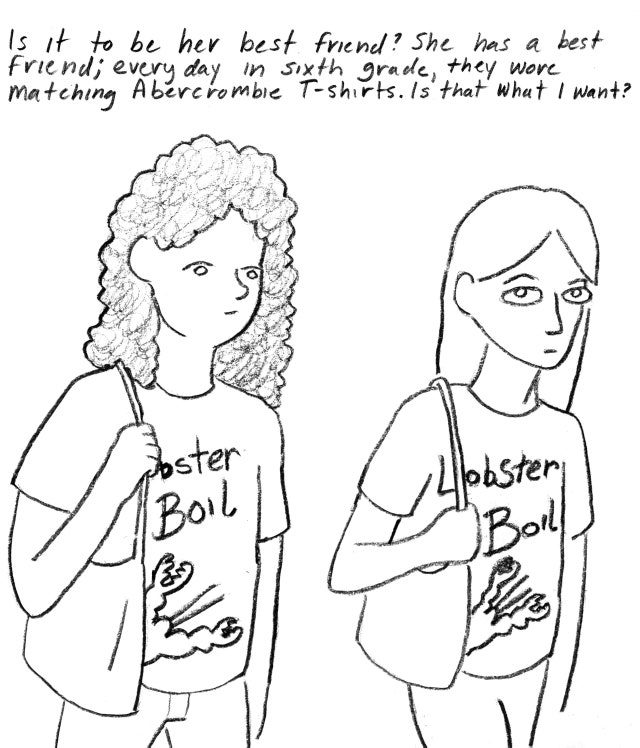 Is it to be her best friend? She has a best
friend; every day in sixth grade, they wore
matching Abercrombie T-shirts. Is that what I want?
obster
Boil
Lobster
Boil